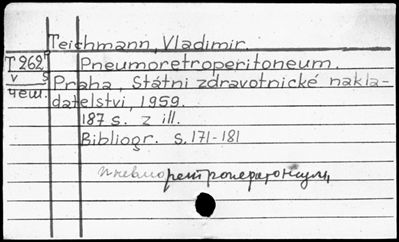 Teichmann, Vladimir.
T 262 Pneumoretroperitoneum.
v Praha, Státni zdravotnické nakla-
чеш. datelstvi, 1959.
187 s. z ill.
Bibliogr. s. 171-181
пневморетроперитонеум